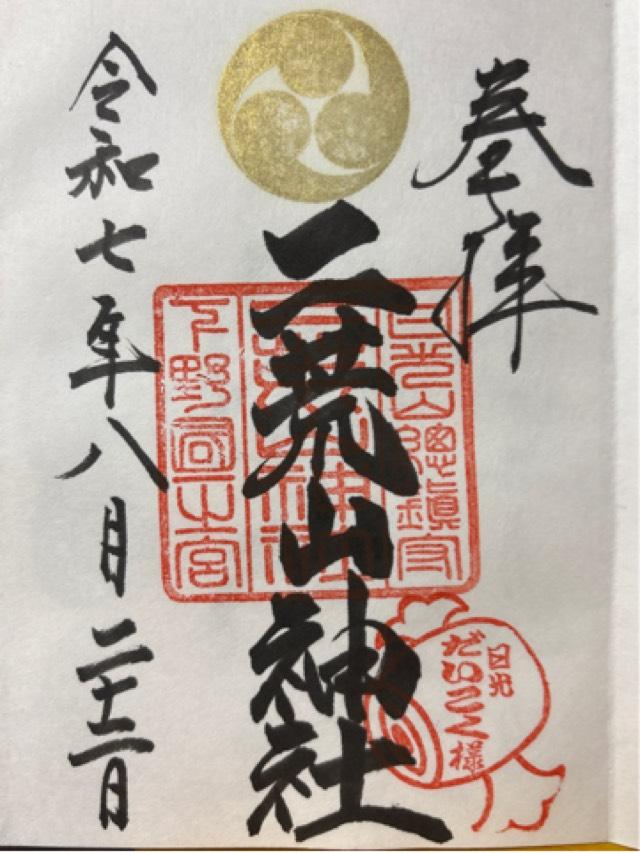 奉拝
日光山總鎮守
二荒山神社
二荒山神社
下野國一之宮
日光
だいこく様
令和七年八月二十二日